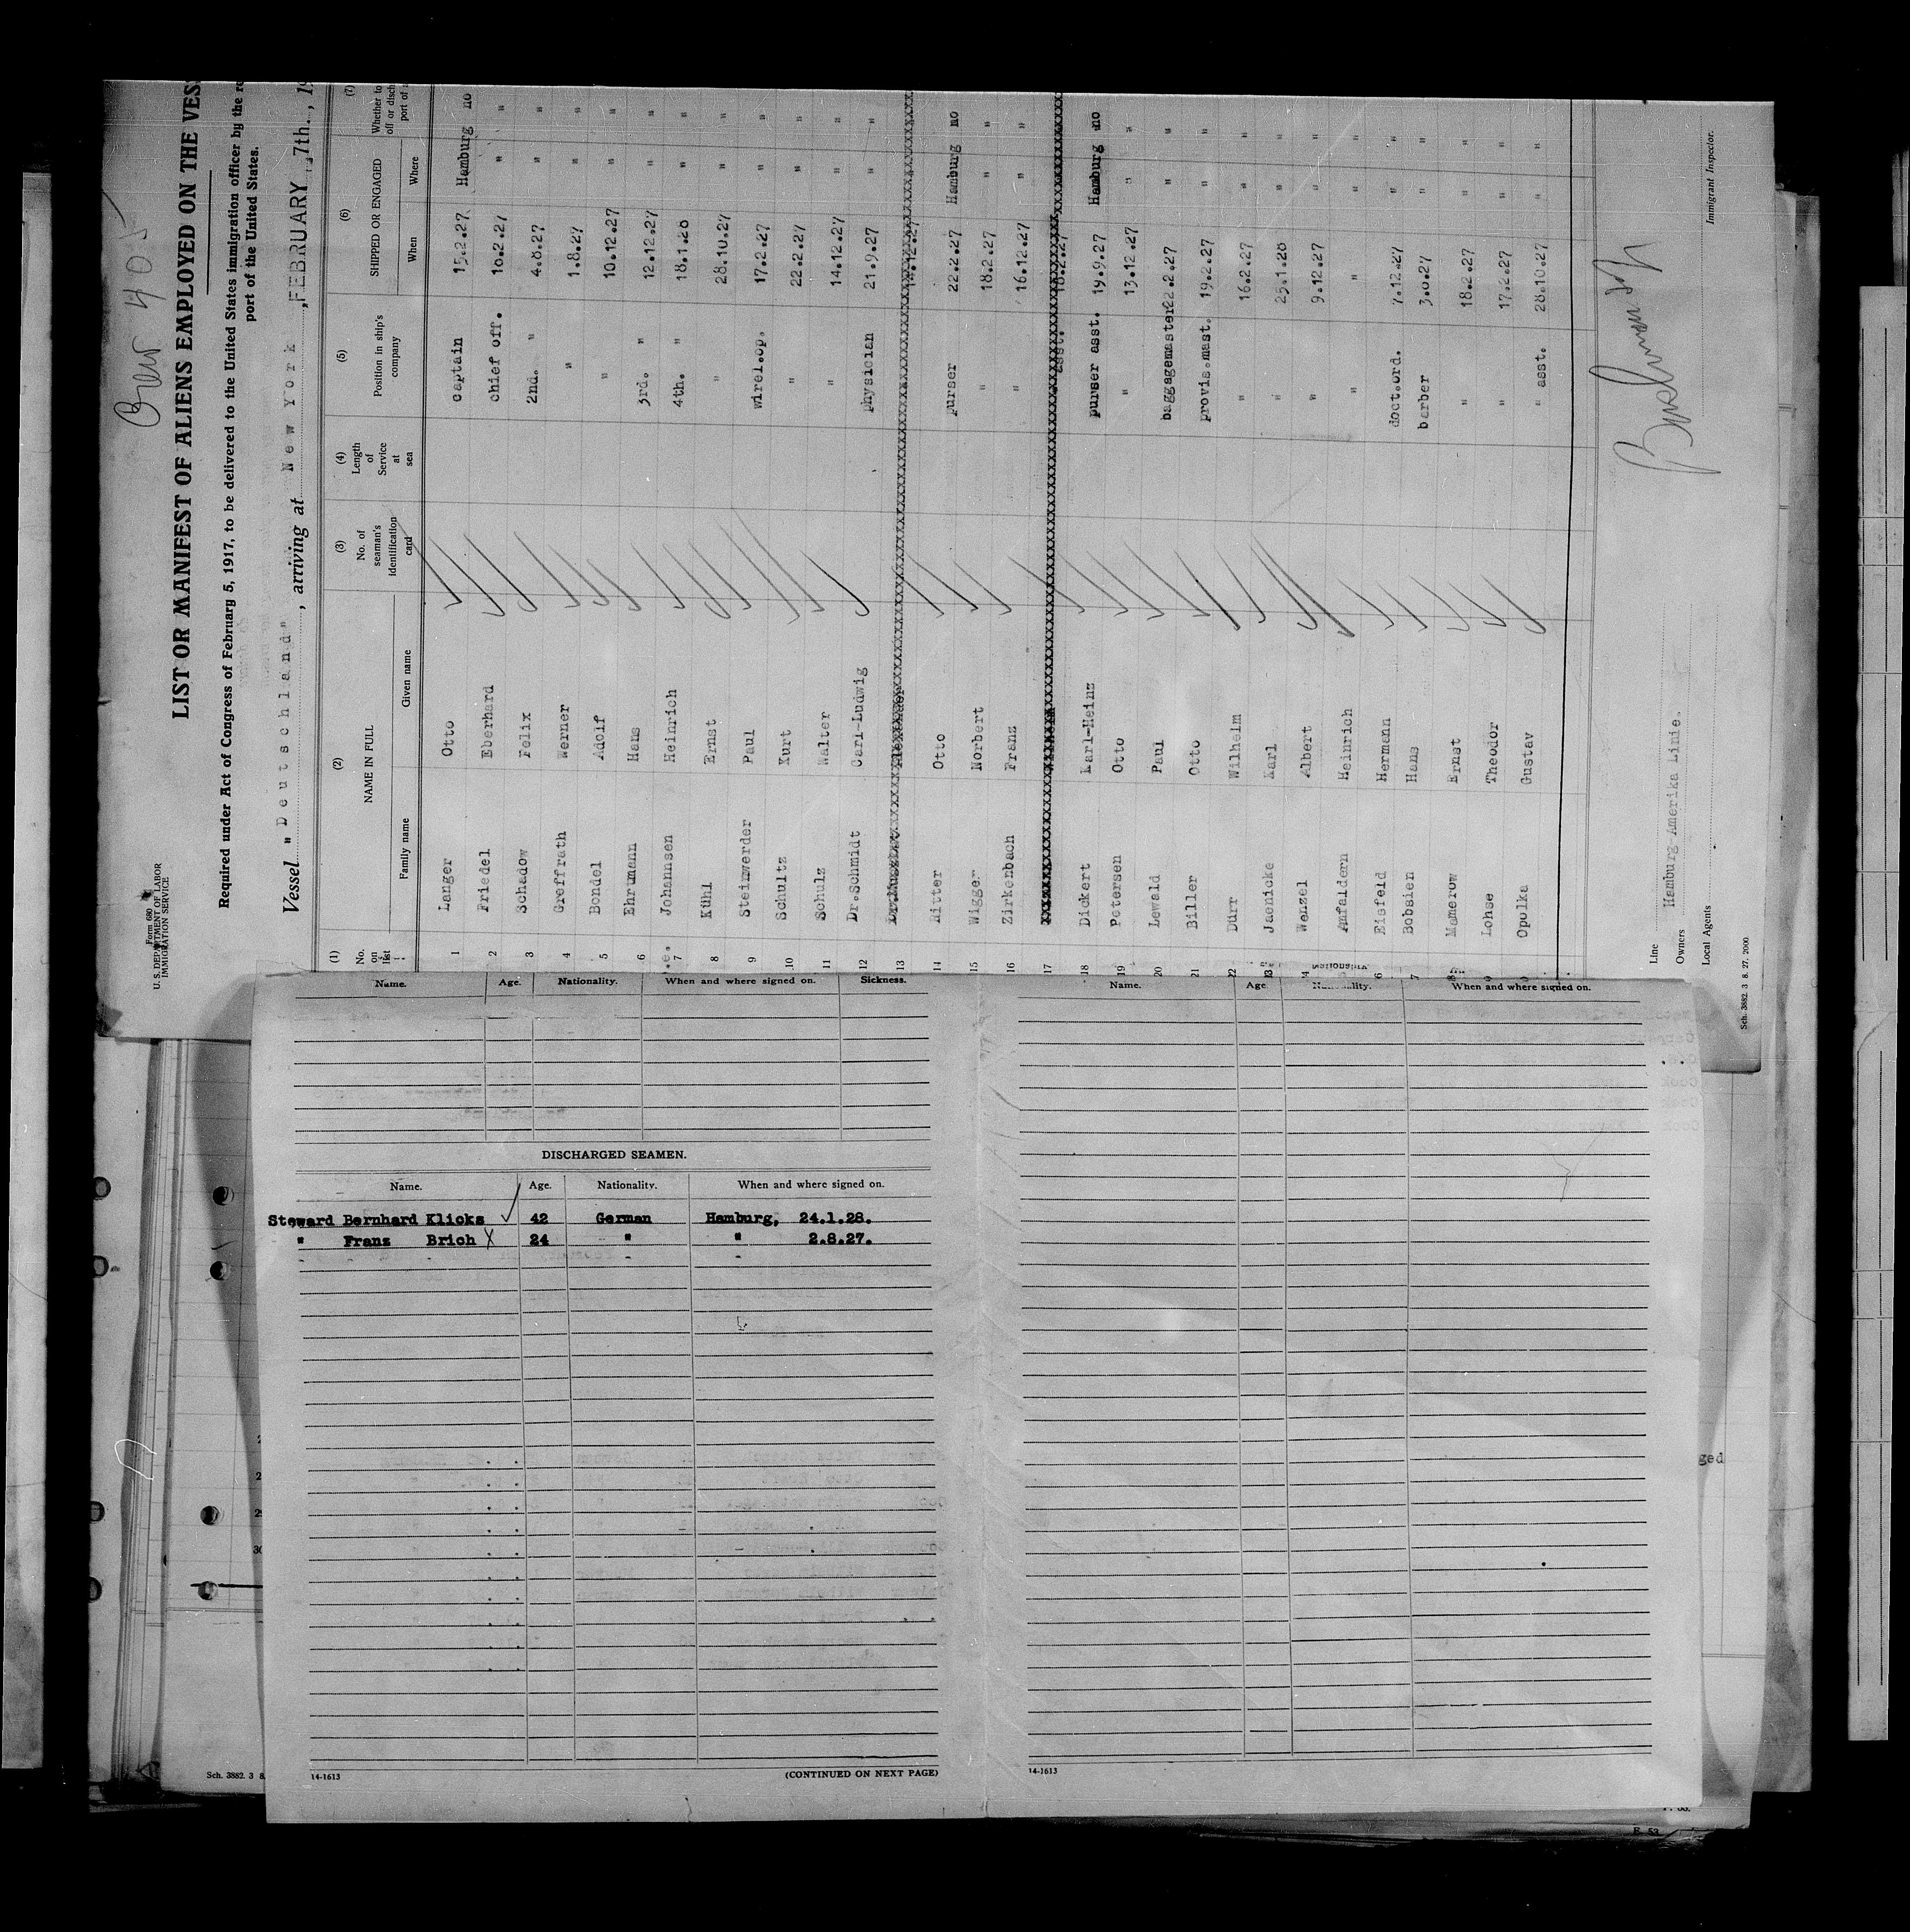 Crew 405
Form 680
U. S. DEPARTMENT OF LABOR
IMMIGRATION SERVICE
LIST OR MANIFEST OF ALIENS EMPLOYED ON THE VES
Required under Act of Congress of February 5, 1917, to be delivered to the United States immigration officer by the re
port of the United States.
Vessel "Deutschland", arriving at New York, FEBRUARY 7th., 19
(1) (2) (3) (4) (5) (6) (7)
No. on list NAME IN FULL No. of seaman's identification card Length of Service at sea Position in ship's company SHIPPED OR ENGAGED Whether to off or disch port of
Family name Given name When Where
1 Langer Otto captain 15.2.27 Hamburg no
2 Friedel Eberhard chief off. 16.2.27 " "
3 Schadow Felix 2nd. " 4.8.27 " "
4 Greffrath Werner " 1.8.27 " "
5 Bendel Adolf " 10.12.27 " "
6 Ehrtmann Hans 3rd. " 12.12.27 " "
7 Johannsen Heinrich 4th. " 18.1.28 " "
8 Kühl Ernst " 28.10.27 " "
9 Steinwerder Paul wirel.op. 17.2.27 " "
10 Schultz Kurt " 22.2.27 " "
11 Schulz Walter " 14.12.27 " "
12 Dr.Schmidt Carl-Ludwig physician 21.9.27 " "
13 Alexander 14.12.27
14 Ritter Otto purser 22.2.27 Hamburg no
15 Wigger Norbert " 18.2.27 " "
16 Zirkenbach Franz " 16.12.27 " "
17 asst. 18.2.27
18 Dickert Karl-Heinz purser asst. 19.9.27 Hamburg no
19 Petersen Otto " 13.12.27 " "
20 Lewald Paul baggagemaster 22.2.27 " "
21 Biller Otto provis.mast. 19.2.27 " "
22 Dürr Wilhelm " 16.2.27 " "
23 Jaenicke Karl " 25.1.28 " "
4 Wenzel Albert " 9.12.27 " "
Anfaldern Heinrich " " " "
6 Eisfeld Hermann doct.ord. 7.12.27 " "
7 Bobsien Hans barber 3.8.27 " "
8 Mamerow Ernst " 18.2.27 " "
9 Lohse Theodor " 17.2.27 " "
0 Opolka Gustav " asst. 28.10.27 " "
Line Hamburg-Amerika Linie.
Owners
Local Agents
Immigrant Inspector.
Sch. 3882. 3 8. 27. 2000.
Name. Age. Nationality. When and where signed on. Sickness.
DISCHARGED SEAMEN.
Name. Age. Nationality. When and where signed on.
Steward Bernhard Klicks 42 German Hamburg, 24.1.28.
" Franz Brich 24 " " 2.8.27.
14-1613 (CONTINUED ON NEXT PAGE)
Name. Age When and where signed on.
14-1613
Sch. 3882. 3 8.
ged
30